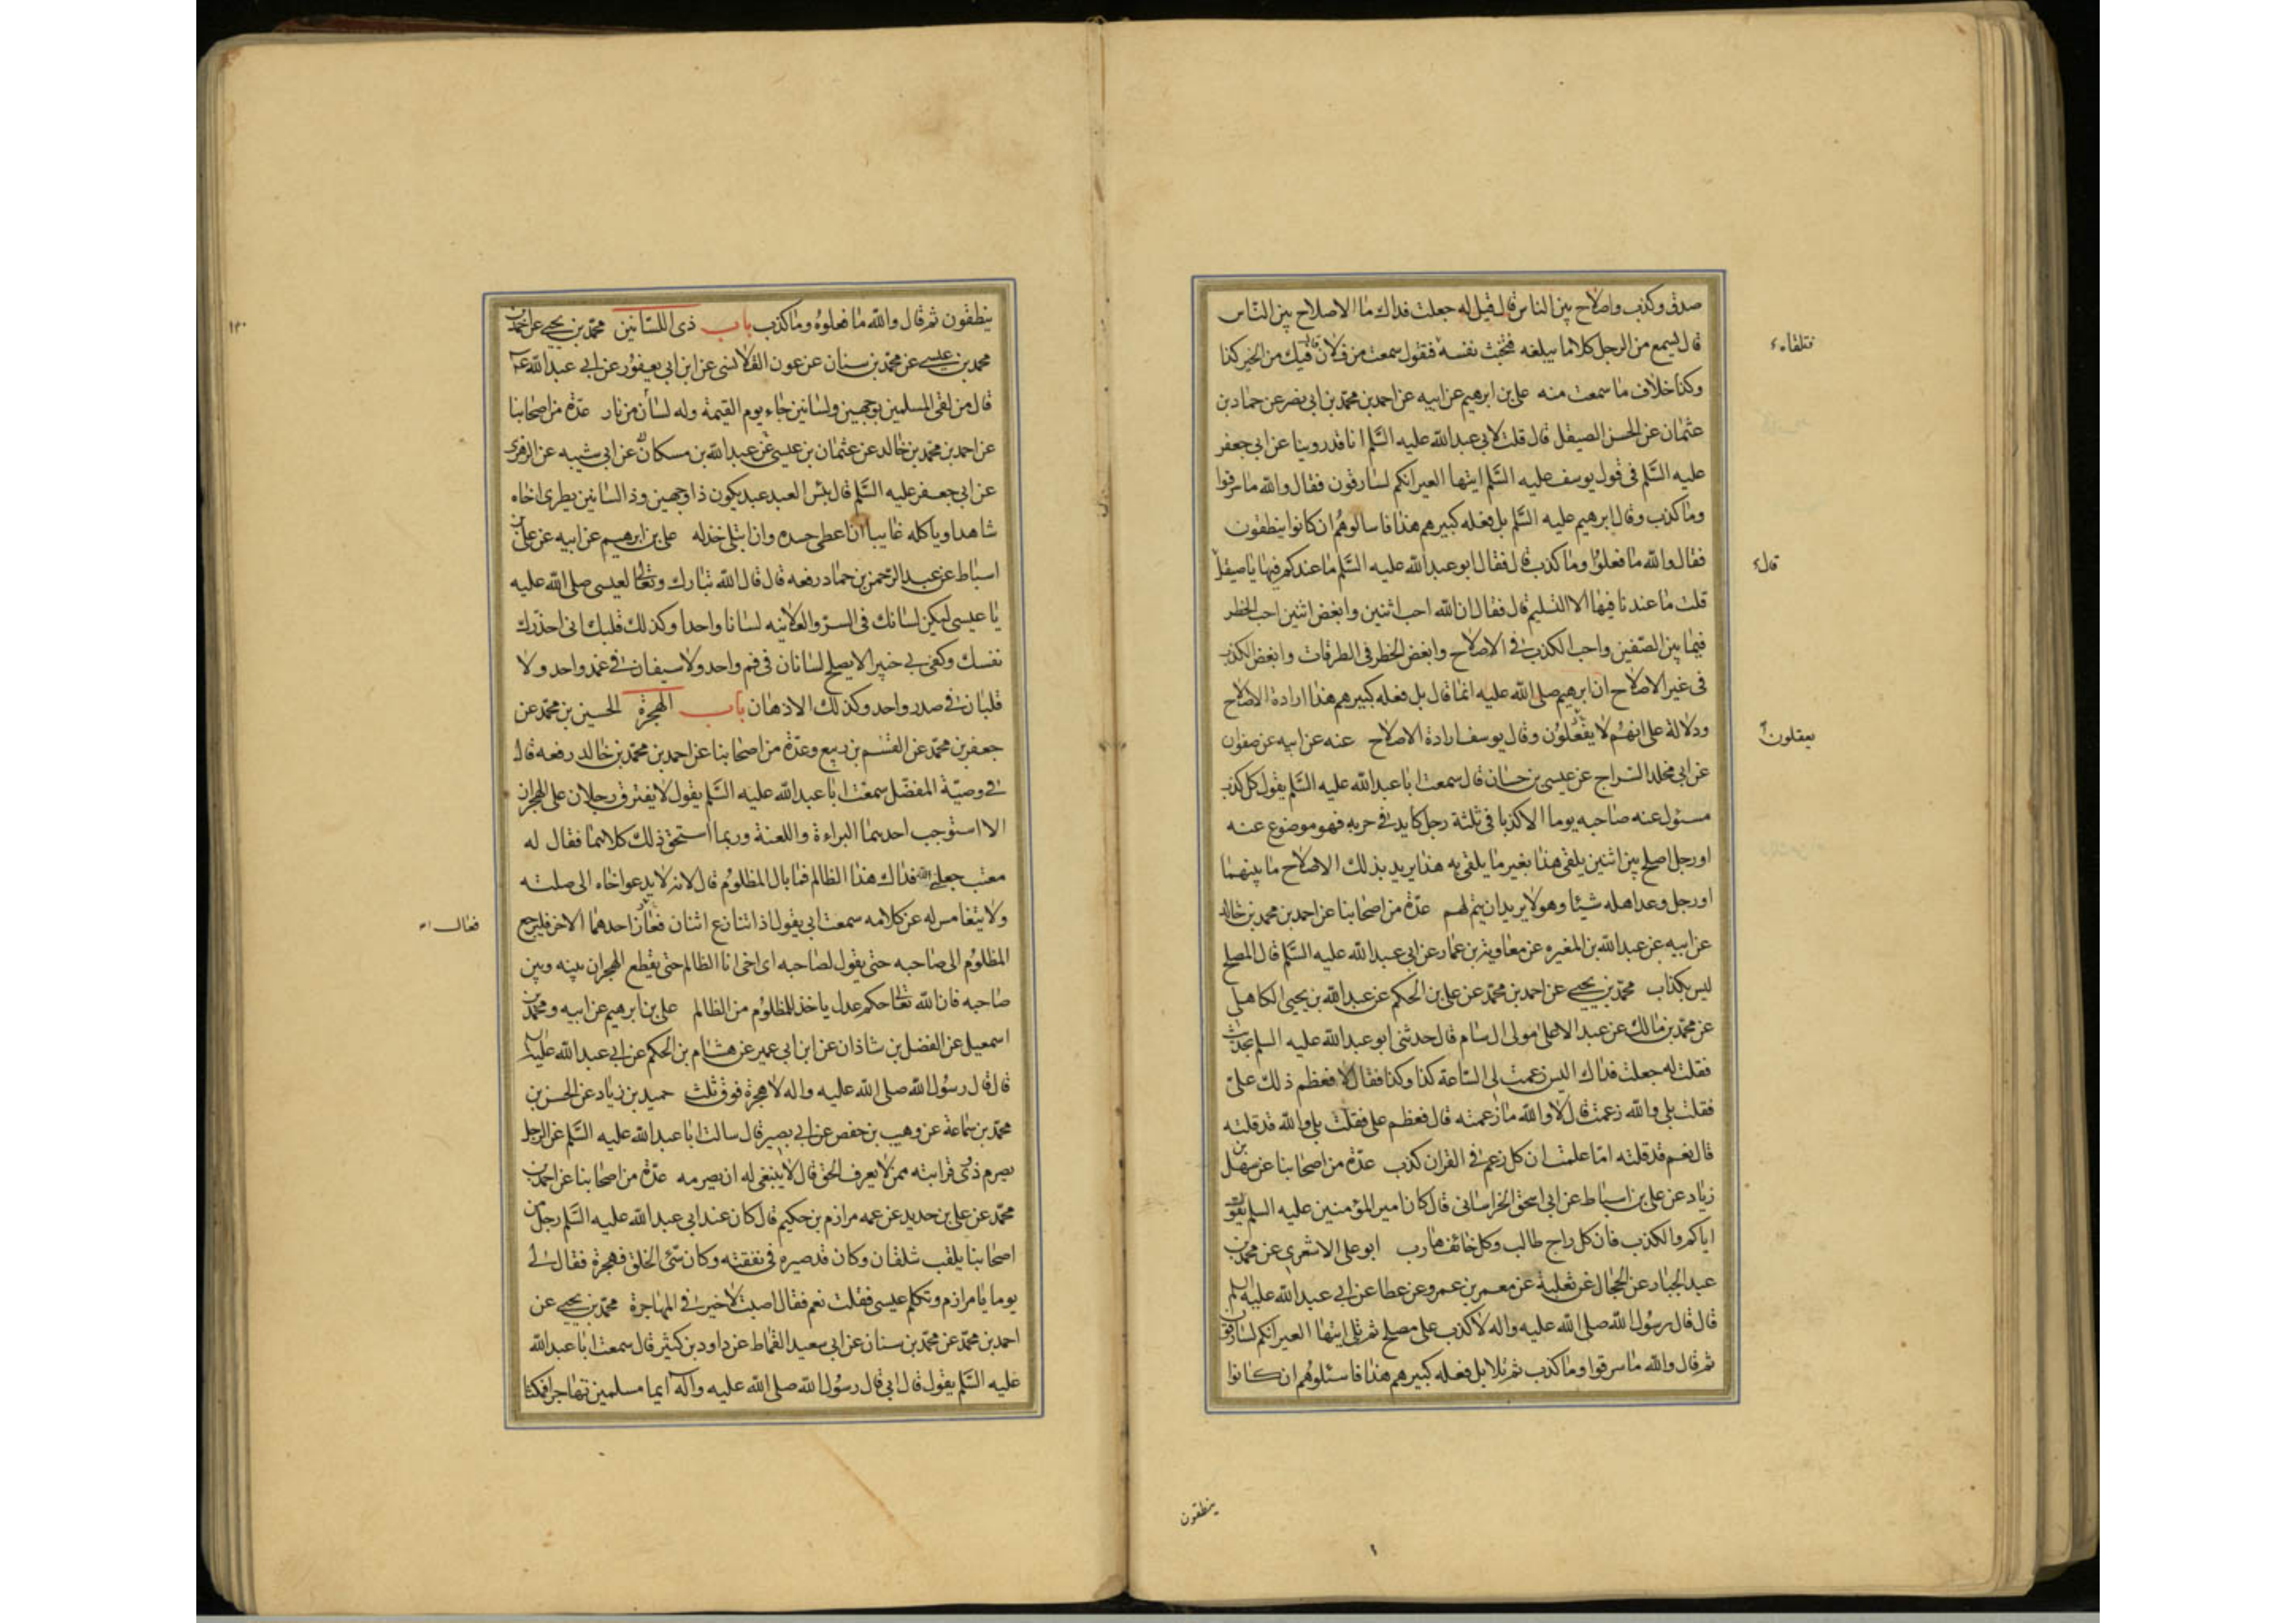 صدق وكذب واصلاح بين الناس قال قيل له جعلت فداك ما الاصلاح بين الناس
قال تسمع من الرجل كلاما يبلغه فتخبث نفسه فتقول سمعت من فلان قال فيك من الخير كذا
وكذا خلاف ما سمعت منه على بن ابرهيم عن ابيه عن احمد بن محمد بن ابى نصر عن حماد بن
عثمان عن الحسن الصيقل قال قلت لابى عبد الله عليه السلم انا قد روينا عن ابى جعفر
عليه السلم فى قول يوسف عليه السلم ايتها العير انكم لسارقون فقال والله ما سرقوا
وما كذب وقال ابرهيم عليه السلم بل فعله كبيرهم هذا فاسالوهم ان كانوا ينطقون
فقال والله ما فعلوا وما كذب قال فقال ابو عبد الله عليه السلم ما عندكم فيها يا صيقل
قلت ما عندنا فيها الا التسليم قال فقال ان الله احب اثنين وابغض اثنين احب الخطر
فيما بين الصفين واحب الكذب فى الاصلاح وابغض الخطر فى الطرقات وابغض الكذب
فى غير الاصلاح ان ابرهيم صلى الله عليه انما قال بل فعله كبيرهم هذا ارادة الاصلاح
ودلالة على انهم لا يفعلون وقال يوسف ارادة الاصلاح عنه عن ابيه عن صفوان
عن ابى مخلد السراج عن عيسى بن حسان قال سمعت ابا عبد الله عليه السلم يقول كل كذب
مسئول عنه صاحبه يوما الا كذبا فى ثلثة رجل كايد فى حربه فهو موضوع عنه
او رجل اصلح بين اثنين يلقى هذا بغير ما يلقى به هذا يريد بذلك الاصلاح ما بينهما
او رجل وعد اهله شيئا وهو لا يريد ان يتم لهم عدة من اصحابنا عن احمد بن محمد بن خالد
عن ابيه عن عبد الله بن المغيره عن معاوية بن عمار عن ابى عبد الله عليه السلم قال المصلح
ليس بكذاب محمد بن يحيى عن احمد بن محمد عن على بن الحكم عن عبد الله بن يحيى الكاهلى
عن محمد بن مالك عن عبد الاعلى مولى ال سام قال حدثنى ابو عبد الله عليه السلم بحديث
فقلت له جعلت فداك اليس زعمت لى الساعة كذا وكذا فقال لا فعظم ذلك على
فقلت بلى والله زعمت قال لا والله ما زعمته قال فعظم على فقلت بلى والله قد قلته
قال نعم قد قلته اما علمت ان كل زعم فى القران كذب عدة من اصحابنا عن سهل بن
زياد عن على بن اسباط عن ابى اسحق الخراسانى قال كان امير المؤمنين عليه السلم يقول
اياكم والكذب فان كل راج طالب وكل خائف هارب ابو على الاشعرى عن محمد بن
عبد الجبار عن الحجال عن ثعلبة عن معمر بن عمرو عن عطا عن ابى عبد الله عليه السلم
قال قال رسول الله صلى الله عليه واله لا كذب على مصلح ثم تلى ايتها العير انكم لسارقون
ثم قال والله ما سرقوا وما كذب ثم تلا بل فعله كبيرهم هذا فاسئلوهم ان كانوا
فتلقاه
قال
يعقلون
ينطقون
١٣٠
ينطقون ثم قال والله ما فعلوه وما كذب باب ذى اللسانين محمد بن يحيى عن احمد بن
محمد بن عيسى عن محمد بن سنان عن عون القلانسى عن ابن ابى يعفور عن ابى عبد الله عم
قال من لقى المسلمين بوجهين ولسانين جاء يوم القيمة وله لسان من نار عدة من اصحابنا
عن احمد بن محمد بن خالد عن عثمان بن عيسى عن عبد الله بن مسكان عن ابى شيبه عن الزهرى
عن ابى جعفر عليه السلم قال بئس العبد عبد يكون ذا وجهين وذا لسانين يطرى اخاه
شاهدا وياكله غايبا ان اعطى حسده وان ابتلى خذله على بن ابرهيم عن ابيه عن على بن
اسباط عن عبد الرحمن بن حماد رفعه قال قال الله تبارك وتعالى لعيسى صلى الله عليه
يا عيسى ليكن لسانك فى السر والعلانيه لسانا واحدا وكذلك قلبك انى احذرك
نفسك وكفى بى خبيرا لا يصلح لسانان فى فم واحد ولا سيفان فى غمد واحد ولا
قلبان فى صدر واحد وكذلك الاذهان باب الهجرة الحسين بن محمد عن
جعفر بن محمد عن القسم بن ربيع وعدة من اصحابنا عن احمد بن محمد بن خالد رفعه قال
فى وصية المفضل سمعت ابا عبد الله عليه السلم يقول لا يفترق رجلان على الهجران
الا استوجب احدهما البراءة واللعنة وربما استحق ذلك كلاهما فقال له
معتب جعلنى الله فداك هذا الظالم فما بال المظلوم قال لانه لا يدعوا اخاه الى صلته
ولا يتغامس له عن كلامه سمعت ابى يقول اذا تنازع اثنان فعاز احدهما الاخر فليرجع
المظلوم الى صاحبه حتى يقول لصاحبه اى اخى انا الظالم حتى يقطع الهجران بينه وبين
صاحبه فان الله تعالى حكم عدل ياخذ للمظلوم من الظالم على بن ابرهيم عن ابيه ومحمد بن
اسمعيل عن الفضل بن شاذان عن ابن ابى عمير عن هشام بن الحكم عن ابى عبد الله عليه السلم
قال قال رسول الله صلى الله عليه واله لا هجرة فوق ثلث حميد بن زياد عن الحسن بن
محمد بن سماعة عن وهيب بن حفص عن ابى بصير قال سالت ابا عبد الله عليه السلم عن الرجل
يصرم ذوى قرابته ممن لا يعرف الحق قال لا ينبغى له ان يصرمه عدة من اصحابنا عن احمد بن
محمد عن على بن حديد عن عمه مرازم بن حكيم قال كان عند ابى عبد الله عليه السلم رجل من
اصحابنا يلقب شلقان وكان قد صيره فى نفقته وكان سئ الخلق فهجرة فقال لى
يوما يا مرازم وتكلم عيسى فقلت نعم فقال اصبت لا خير فى المهاجرة محمد بن يحيى عن
احمد بن محمد عن محمد بن سنان عن ابى سعيد القماط عن داود بن كثير قال سمعت ابا عبد الله
عليه السلم يقول قال ابى قال رسول الله صلى الله عليه واله ايما مسلمين تهاجرا فمكثا
فعال